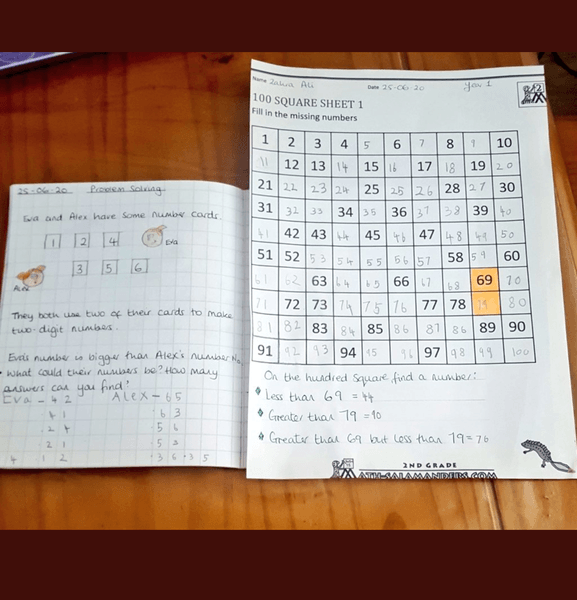 25-06-20 Problem Solving.
Eva and Alex have some number cards.
1 2 4 Eva
3 5 6
Alex
They both use two of their cards to make
two-digit numbers.
Eva's number is bigger than Alex's number
What could their numbers be? How many
answers can you find?
Eva - 42 Alex - 65
41 63
24 56
21 53
4 12 36 35
Name Zahra Ali Date 25-06-20 Year 1
100 SQUARE SHEET 1
Fill in the missing numbers
1 2 3 4 5 6 7 8 9 10
11 12 13 14 15 16 17 18 19 20
21 22 23 24 25 25 26 28 27 30
31 32 33 34 35 36 37 38 39 40
41 42 43 44 45 46 47 48 49 50
51 52 53 54 55 56 57 58 59 60
61 62 63 64 65 66 67 68 69 70
71 72 73 74 75 76 77 78 79 80
81 82 83 84 85 86 87 86 89 90
91 92 93 94 95 96 97 98 99 100
On the hundred square find a number:
Less than 69 = 44
Greater than 79 = 90
Greater than 69 but less than 79 = 76
2ND GRADE
MATH-SALAMANDERS.COM